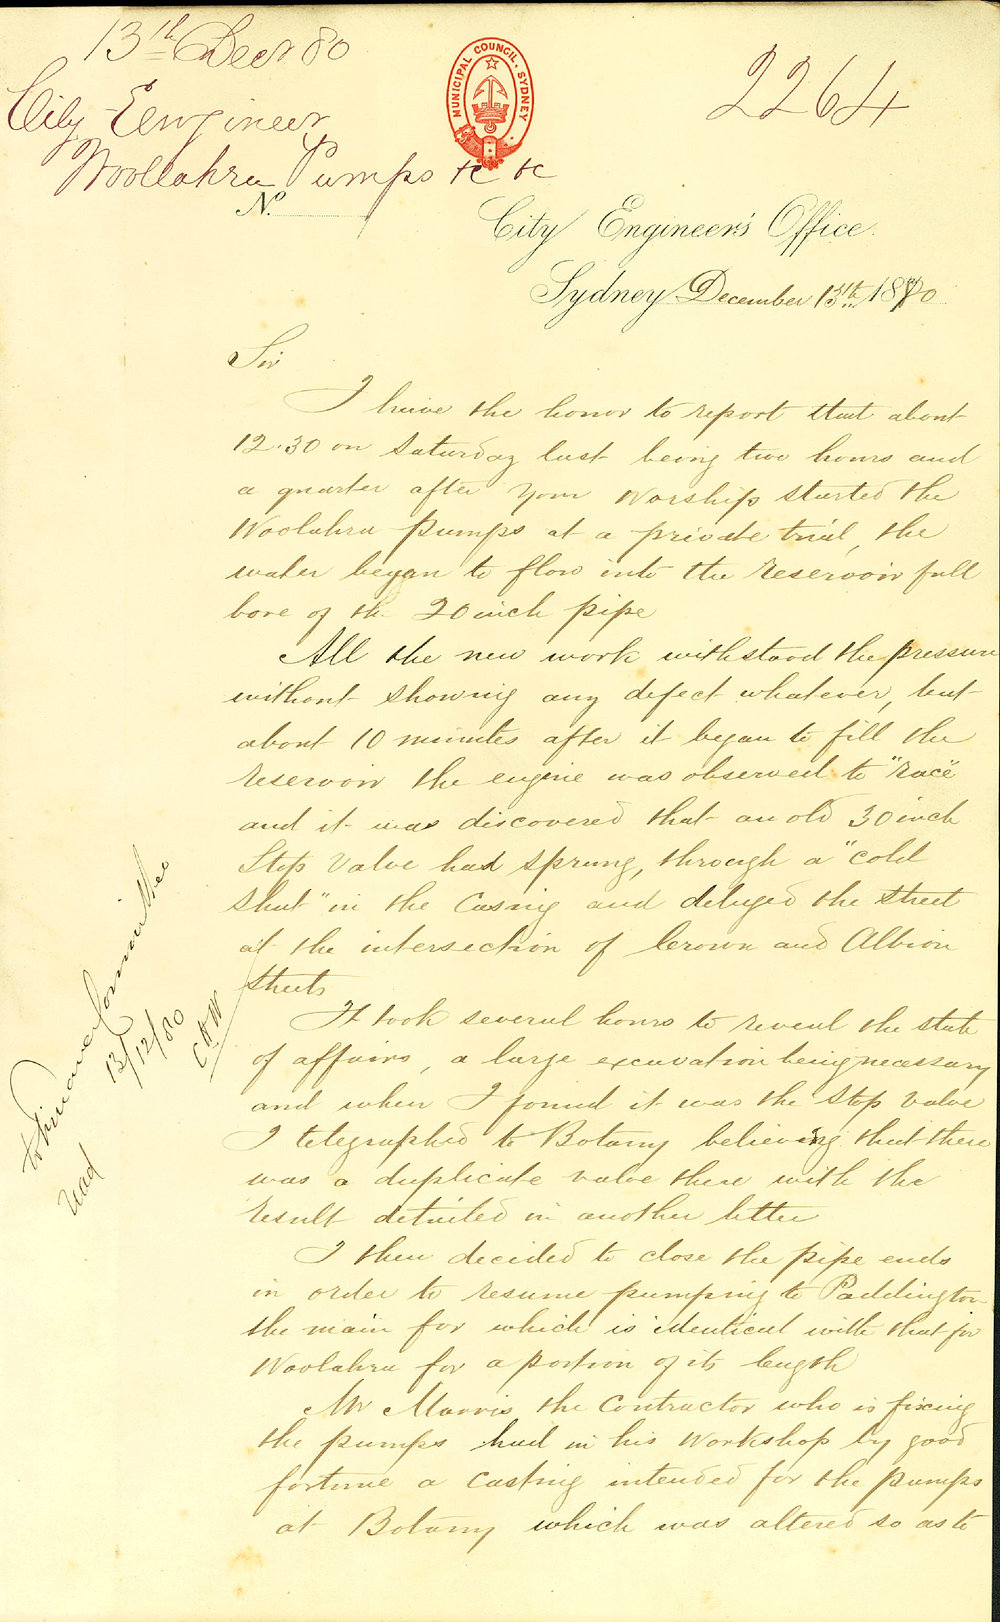 13th Decr 80
City Engineer
Woollahra Pumps &c &c
2264
MUNICIPAL COUNCIL, SYDNEY
No.
City Engineer's Office.
Sydney December 13th 1880
Sir
I have the honor to report that about
12.30 on Saturday last being two hours and
a quarter after Your Worship started the
Woolahra pumps at a private trial, the
water began to flow into the reservoir full
bore of the 20 inch pipe
All the new work withstood the pressure
without showing any defect whatever, but
about 10 minutes after it began to fill the
reservoir the engine was observed to "race"
and it was discovered that an old 30 inch
Stop Valve had sprung, through a "cold
shut" in the Casing and deluged the street
at the intersection of Crown and Albion
Streets
It took several hours to reveal the state
of affairs, a large excavation being necessary
and when I found it was the Stop Valve
I telegraphed to Botany believing that there
was a duplicate valve there with the
result detailed in another letter
I then decided to close the pipe ends
in order to resume pumping to Paddington
the main for which is identical with that for
Woolahra for a portion of its length
Mr Morris the Contractor who is fixing
the pumps had in his Workshop by good
fortune a Casting intended for the pumps
at Botany which was altered so as to
to Finance Committee
13/12/80
C H W
read